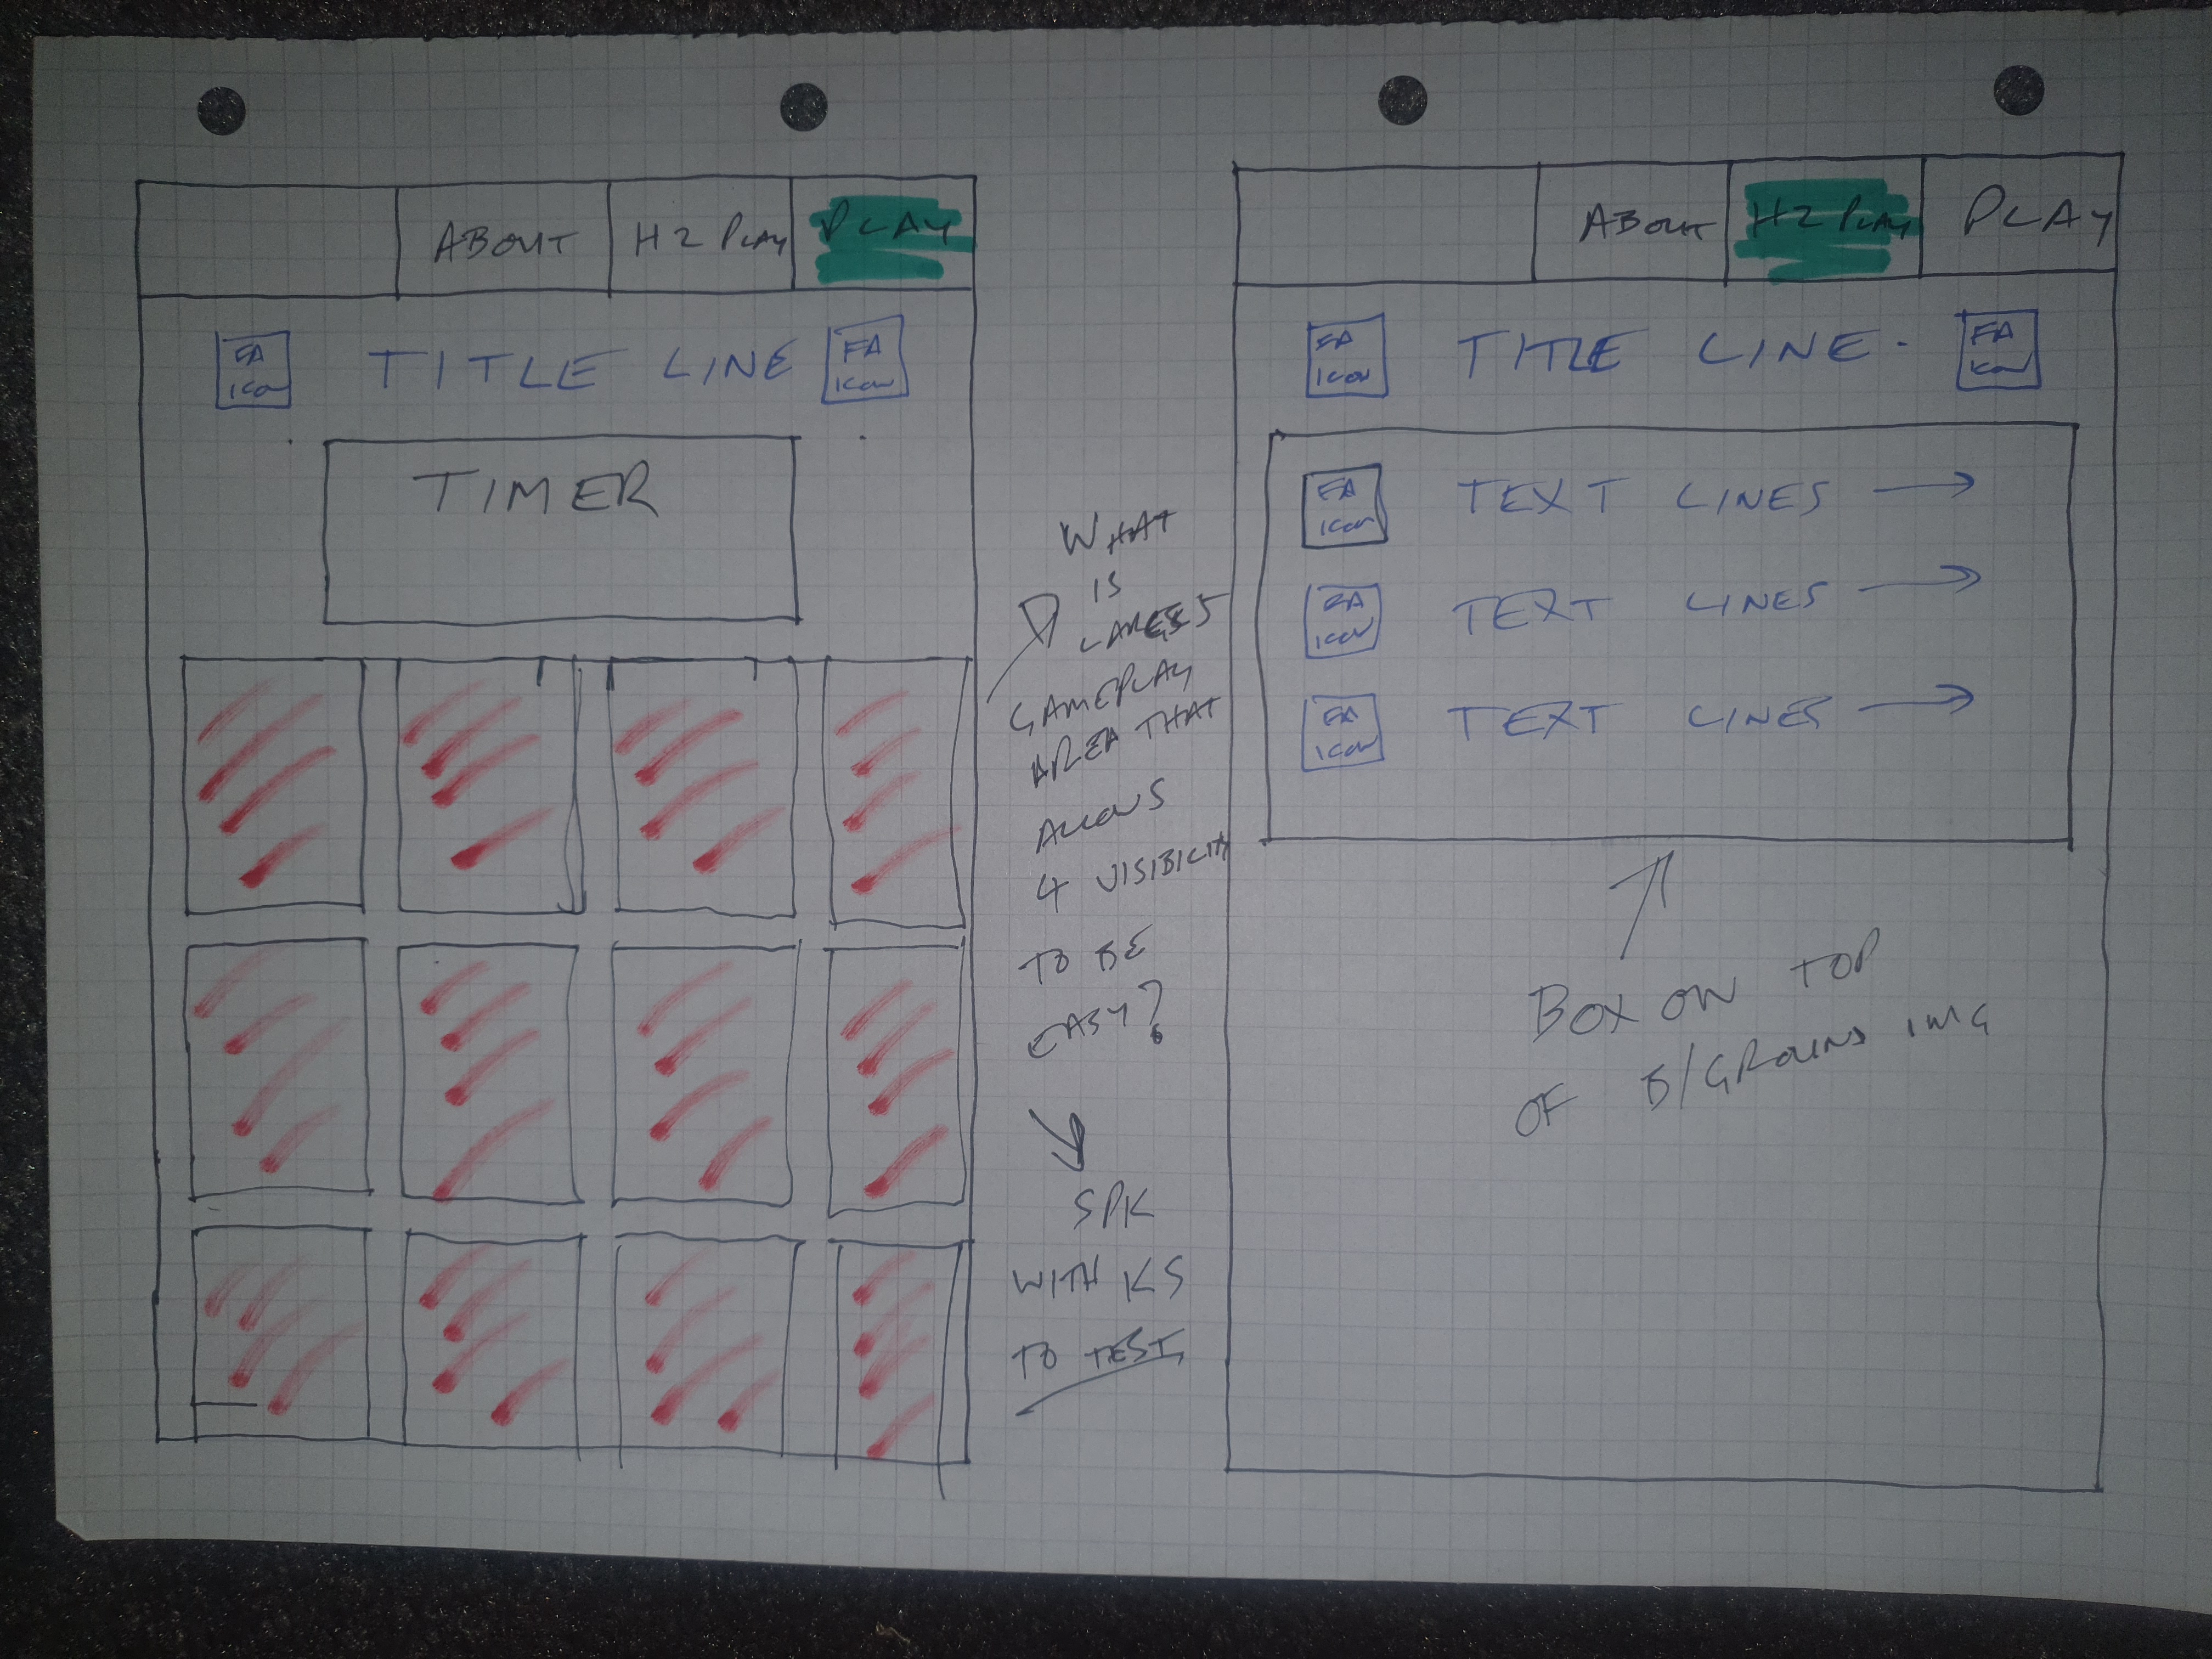 ABOUT H2 PLAY PLAY
FA ICON TITLE LINE FA ICON
TIMER
WHAT
IS
LARGEST
GAMEPLAY
AREA THAT
ALLOWS
4 VISIBILITY
TO BE
EASY?
SPK
WITH KS
TO TEST
ABOUT H2 PLAY PLAY
FA ICON TITLE LINE. FA ICON
FA ICON TEXT LINES
FA ICON TEXT LINES
FA ICON TEXT LINES
BOX ON TOP
OF B/GROUND IMG